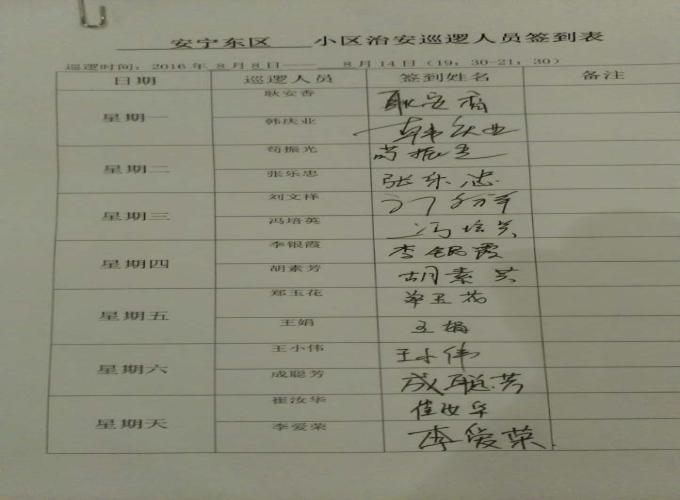 安宁东区 小区治安巡逻人员签到表
巡逻时间：2016年8月8日——8月14日（19：30-21：30）
日期 巡逻人员 签到姓名 备注
星期一 耿安香 耿安香
韩庆业 韩庆业
星期二 苟振光 苟振光
张乐忠 张乐忠
星期三 刘文祥
冯培英 冯培英
星期四 李银霞 李银霞
胡素芳 胡素芳
星期五 郑玉花 郑玉花
王娟 王娟
星期六 王小伟 王小伟
成聪芳 成聪芳
星期天 崔汝华 崔汝华
李爱荣 李爱荣